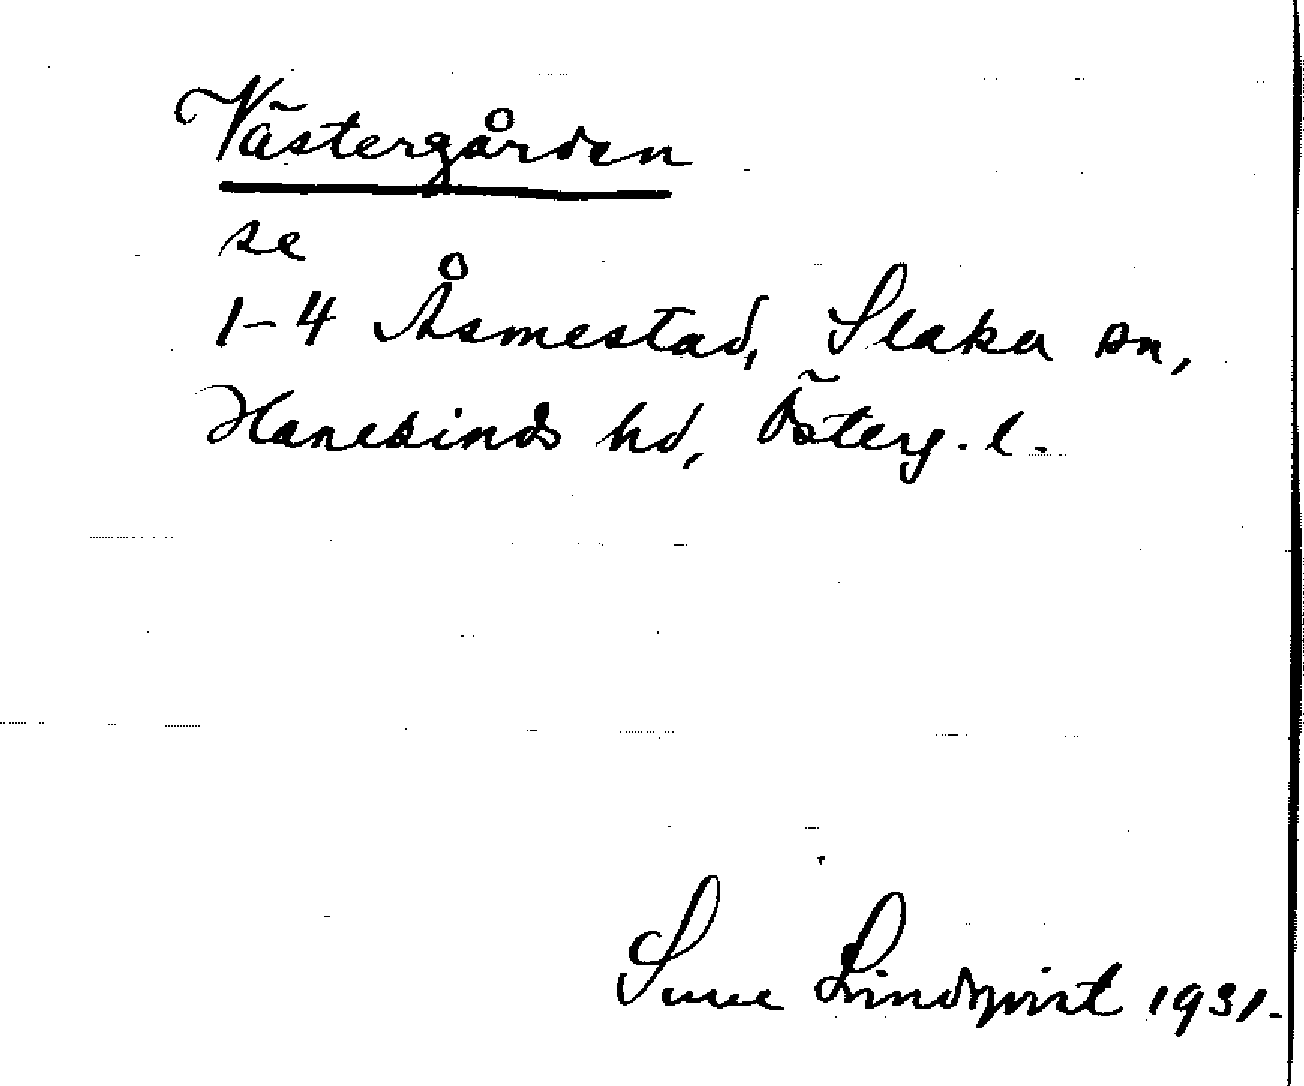 Västergården
se
1-4 Åsmestad, Slaka sn,
Hanekinds hd, Österg. l.
Sune Lindqvist 1931.